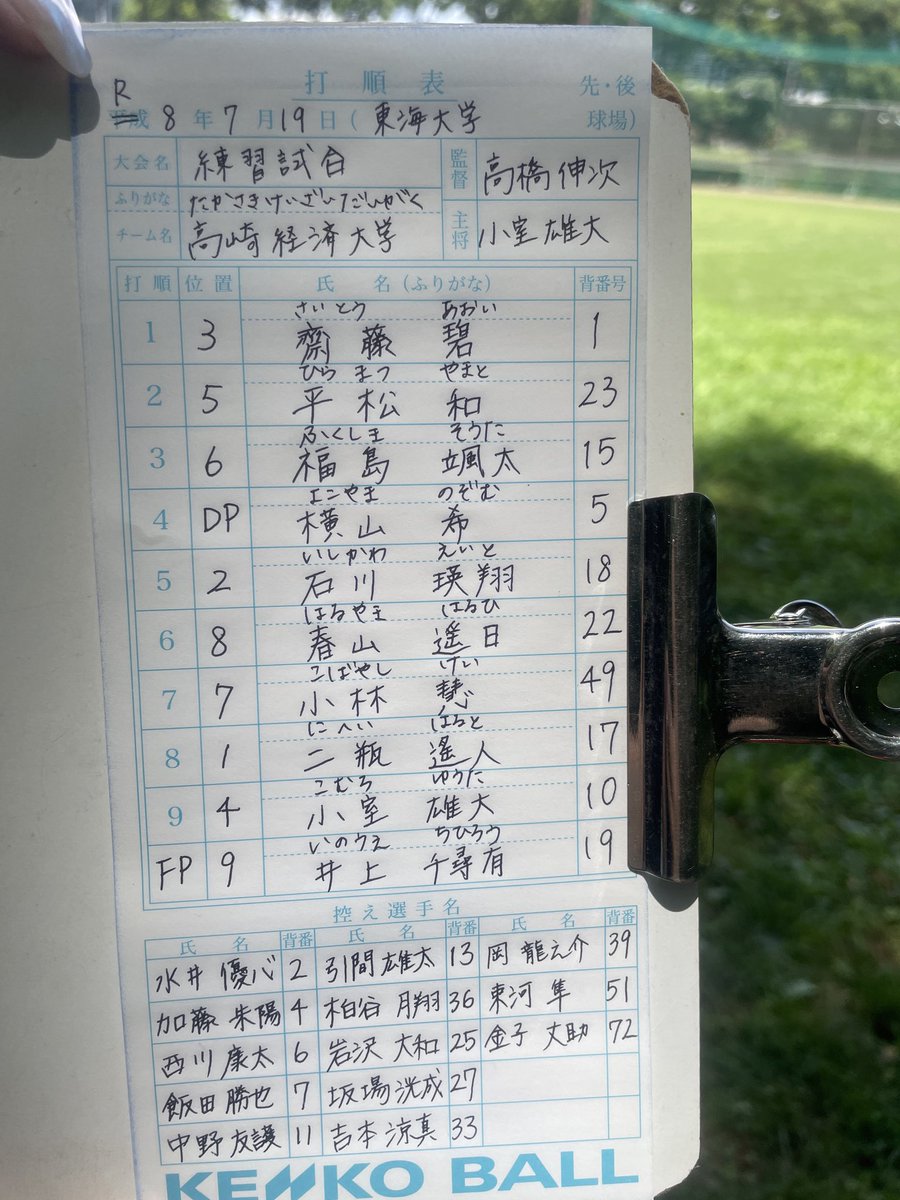 打順表 先・後
R 平成 8年 7月 19日 ( 東海大学 球場)
大会名 練習試合 監督 高橋伸次
ふりがな たかさきけいざいだいがく
チーム名 高崎経済大学 主将 小室雄大
打順 位置 氏名(ふりがな) 背番号
さいとう あおい
1 3 齋藤 碧 1
ひらまつ やまと
2 5 平松 和 23
ふくしま そうた
3 6 福島 颯太 15
よこやま のぞむ
4 DP 横山 希 5
いしかわ えいと
5 2 石川 瑛翔 18
はるやま はるひ
6 8 春山 遥日 22
こばやし けい
7 7 小林 慧 49
にへい はると
8 1 二瓶 遙人 17
こむろ ゆうた
9 4 小室 雄大 10
いのうえ ちひろう
FP 9 井上 千尋有 19
控え選手名
氏名 背番 氏名 背番 氏名 背番
水井 優心 2 引間 雄太 13 岡 龍之介 39
加藤 朱陽 4 柏谷 月翔 36 東河 隼 51
西川 康太 6 岩沢 大和 25 金子 丈助 72
飯田 勝也 7 坂場 洸成 27
中野 友護 11 吉本 涼真 33
KENKO BALL